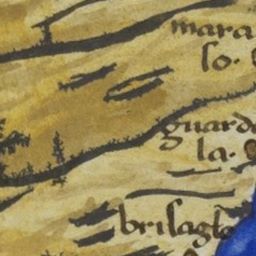 mara
so.
guarda
la.
brisagla